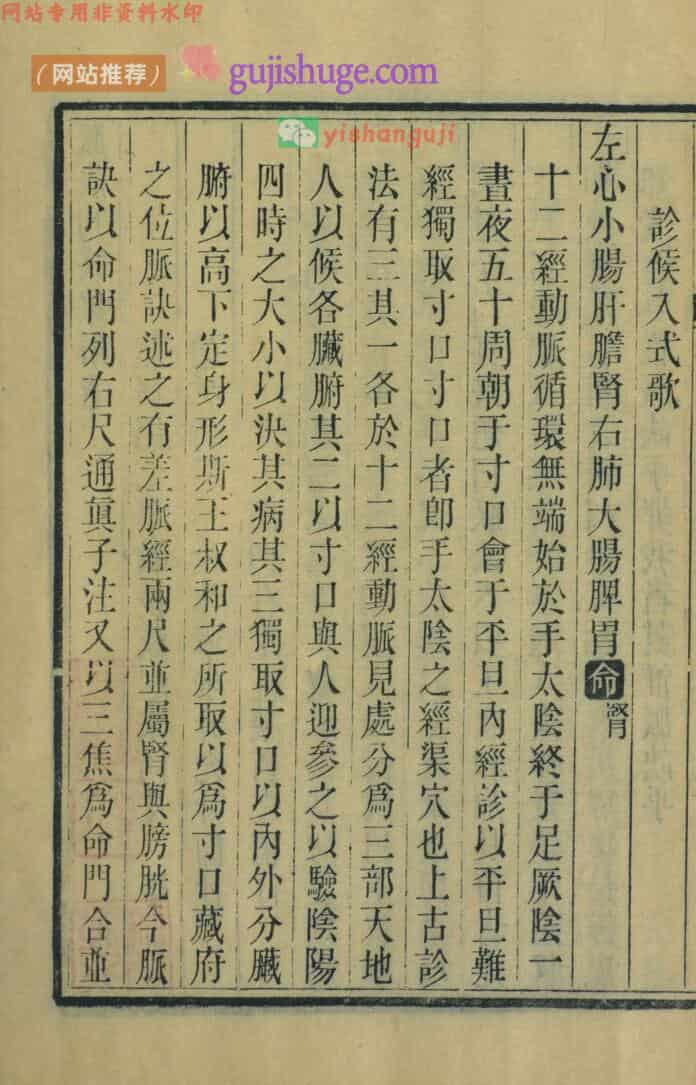 网站专用非资料水印
（网站推荐）
gujishuge.com
yishanguji
診候入式歌
左心小腸肝膽腎右肺大腸脾胃命腎
十二經動脈循環無端始於手太陰終于足厥陰一
晝夜五十周朝于寸口會于平旦內經診以平旦難
經獨取寸口寸口者卽手太陰之經渠穴也上古診
法有三其一各於十二經動脈見處分爲三部天地
人以候各臟腑其二以寸口與人迎參之以驗陰陽
四時之大小以決其病其三獨取寸口以內外分臟
腑以高下定身形斯王叔和之所取以爲寸口藏府
之位脈訣述之有差脈經兩尺並屬腎與膀胱今脈
訣以命門列右尺通眞子注又以三焦爲命門合並